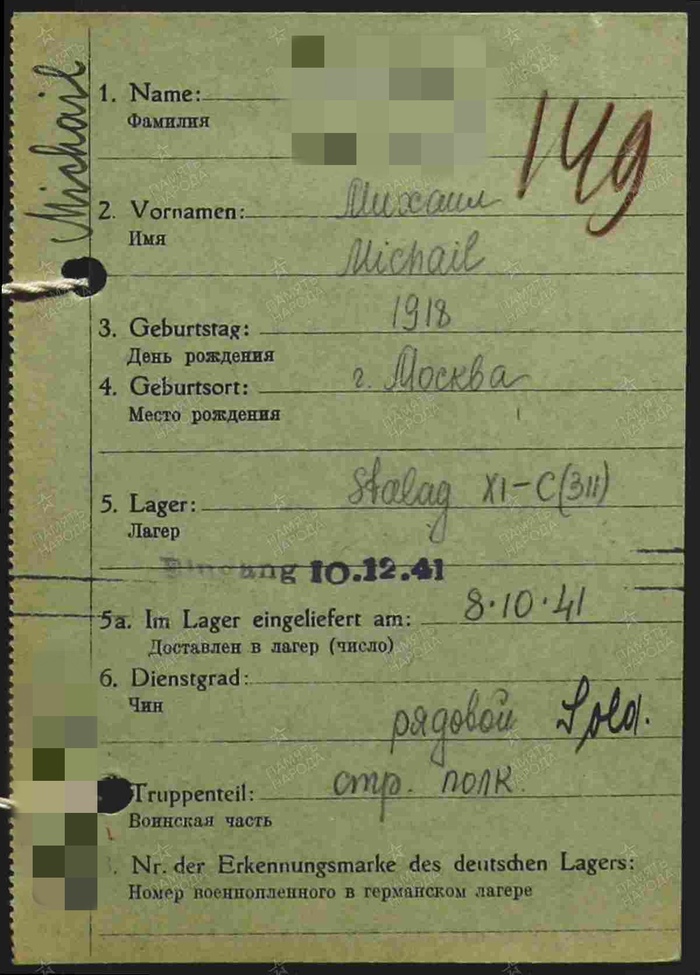 Michail
149
1. Name:
Фамилия
2. Vornamen: Михаил
Имя
Michail
3. Geburtstag: 1918
День рождения
4. Geburtsort: г. Москва
Место рождения
5. Lager: Stalag XI-C (311)
Лагер
Eingang 10.12.41
5a. Im Lager eingeliefert am: 8.10.41
Доставлен в лагер (число)
6. Dienstgrad:
Чин
рядовой Sold.
Truppenteil: стр. полк
Воинская часть
. Nr. der Erkennungsmarke des deutschen Lagers:
Номер военнопленного в германском лагере
ПАМЯТЬ НАРОДА